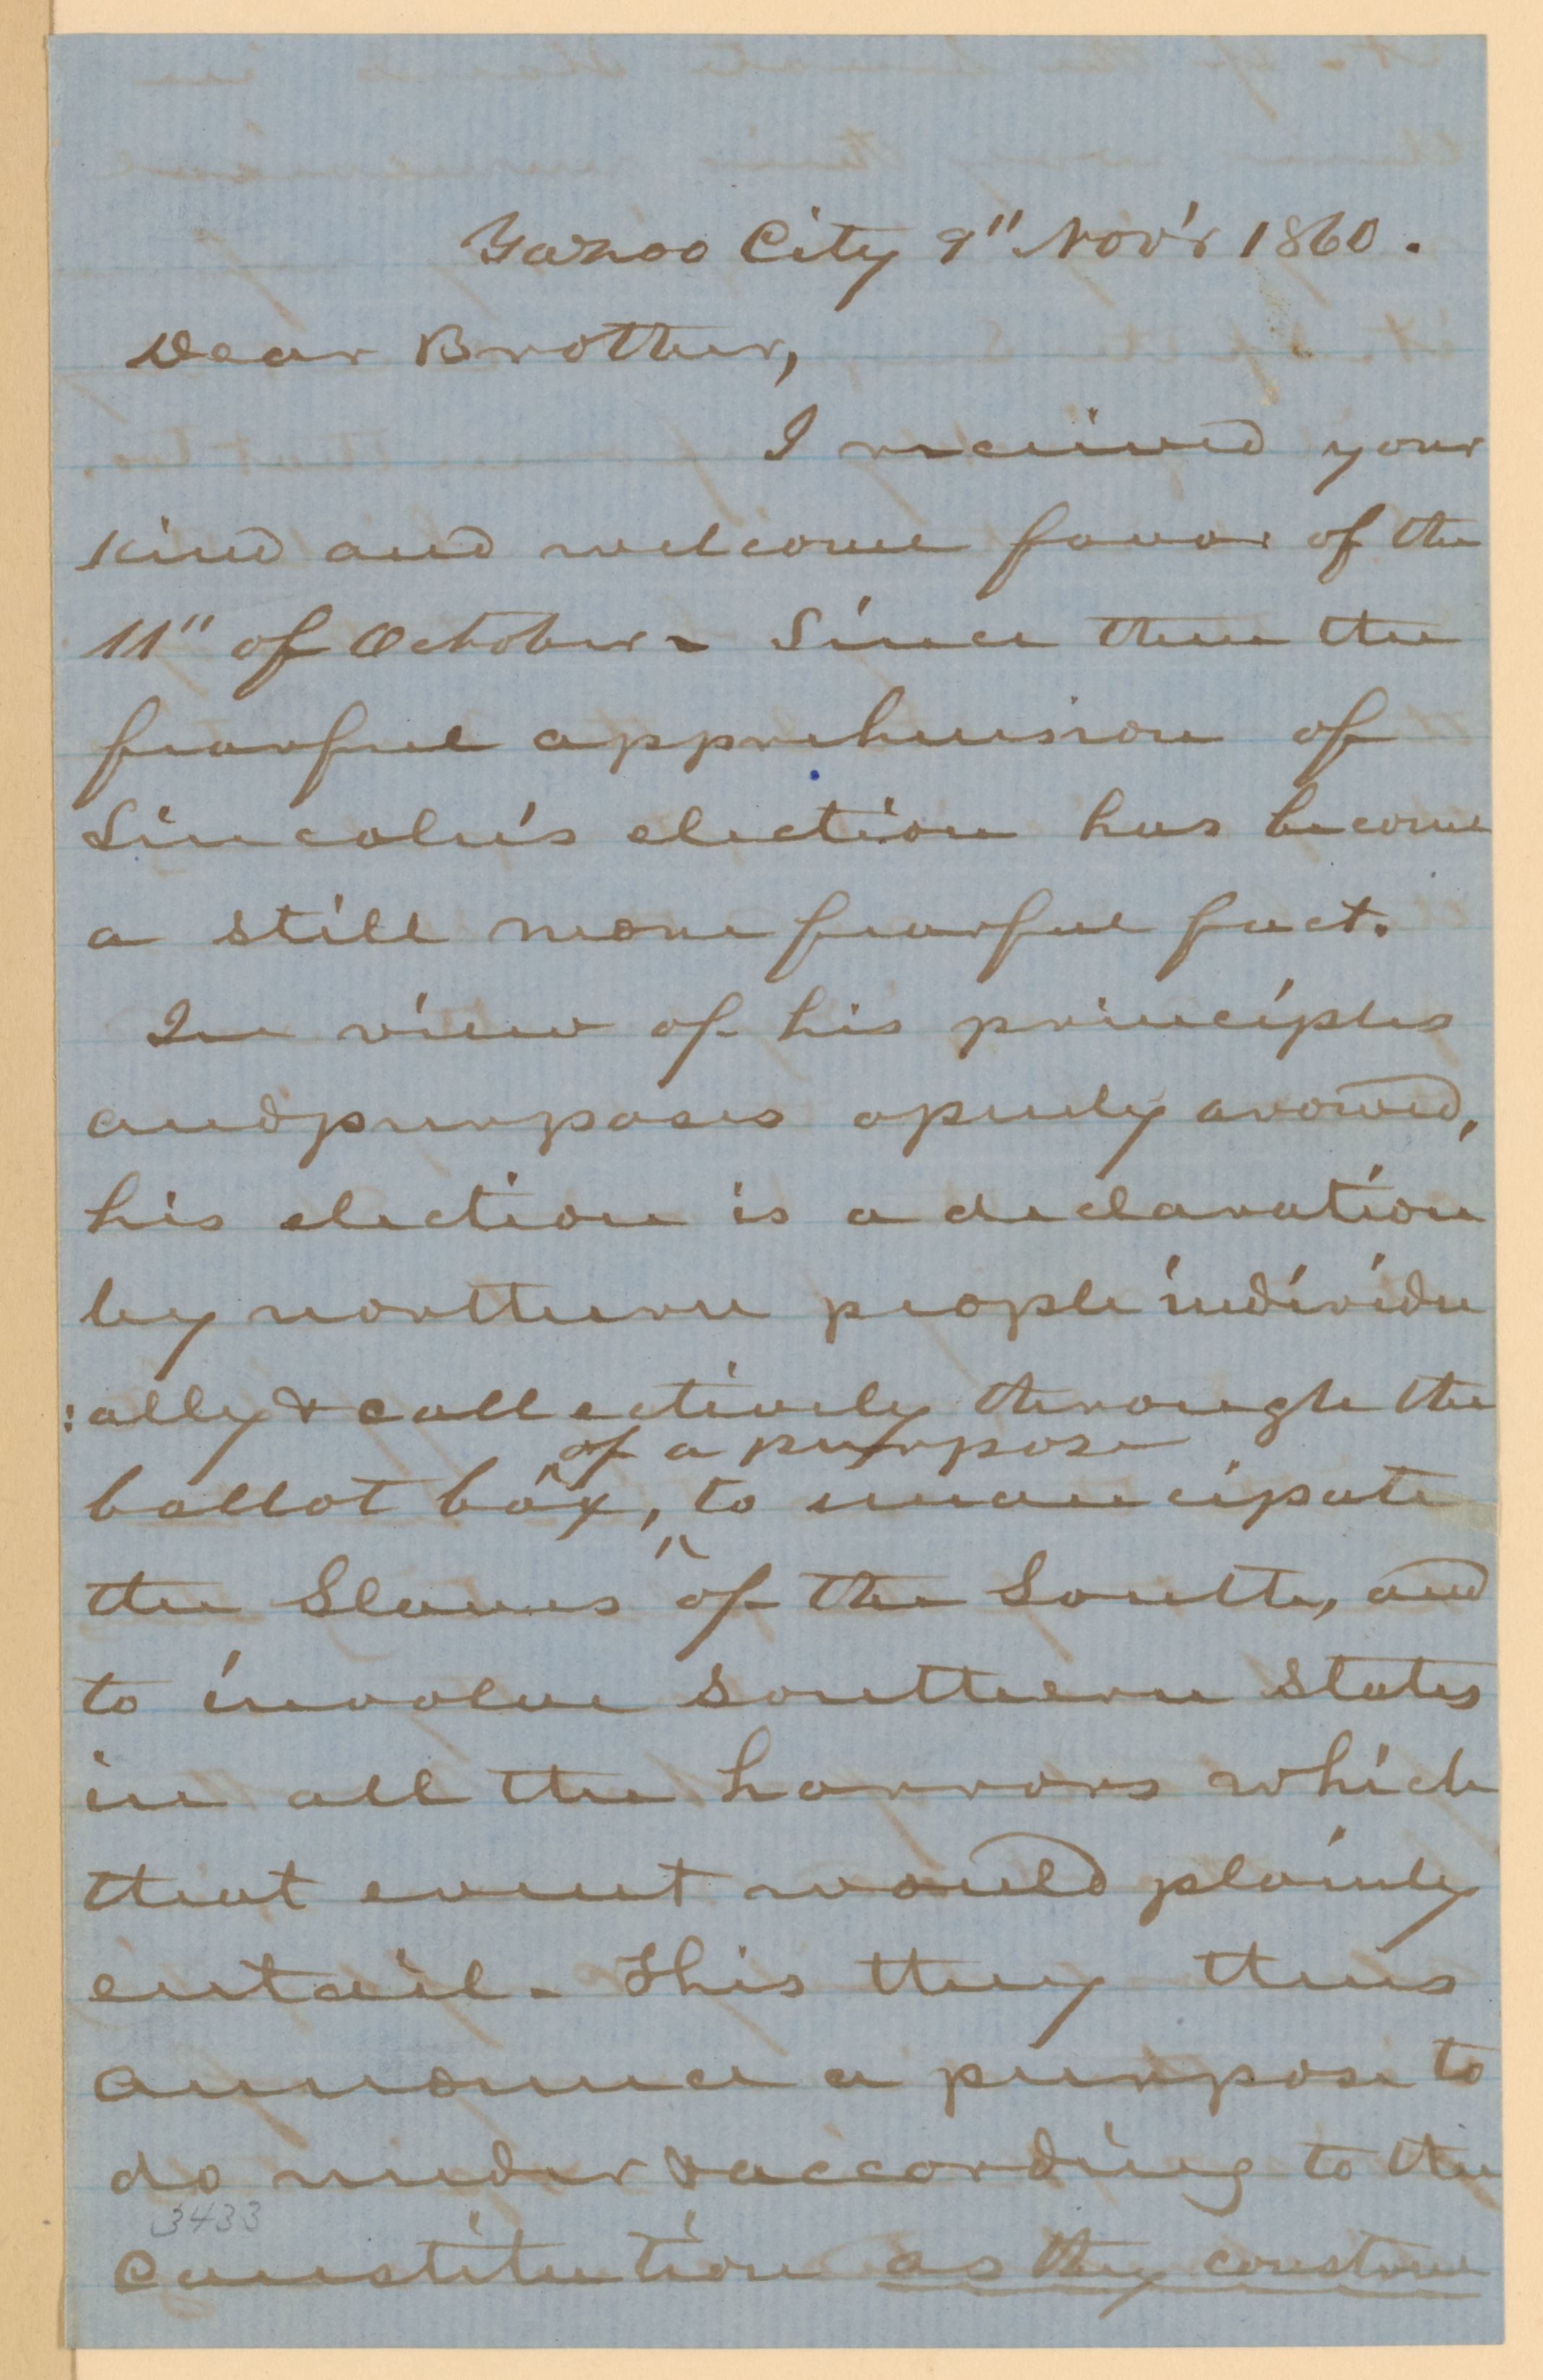 Yazoo City 9" Nov'r 1860.
Dear Brother,
I received your
kind and welcome favor of the
11" of October - Since then the
fearful apprehension of
Lincoln's election has become
a still more fearful fact.
In view of his principles
and purposes openly avowed,
his election is a declaration
by northern people individu
:ally & collectively through the
of a purpose
ballot box, to emancipate
the Slaves of the South, and
to involve Southern States
in all the horrors which
that event would plainly
entail - This they thus
announce a purpose to
do under & according to the
3433
Constitution as they construe